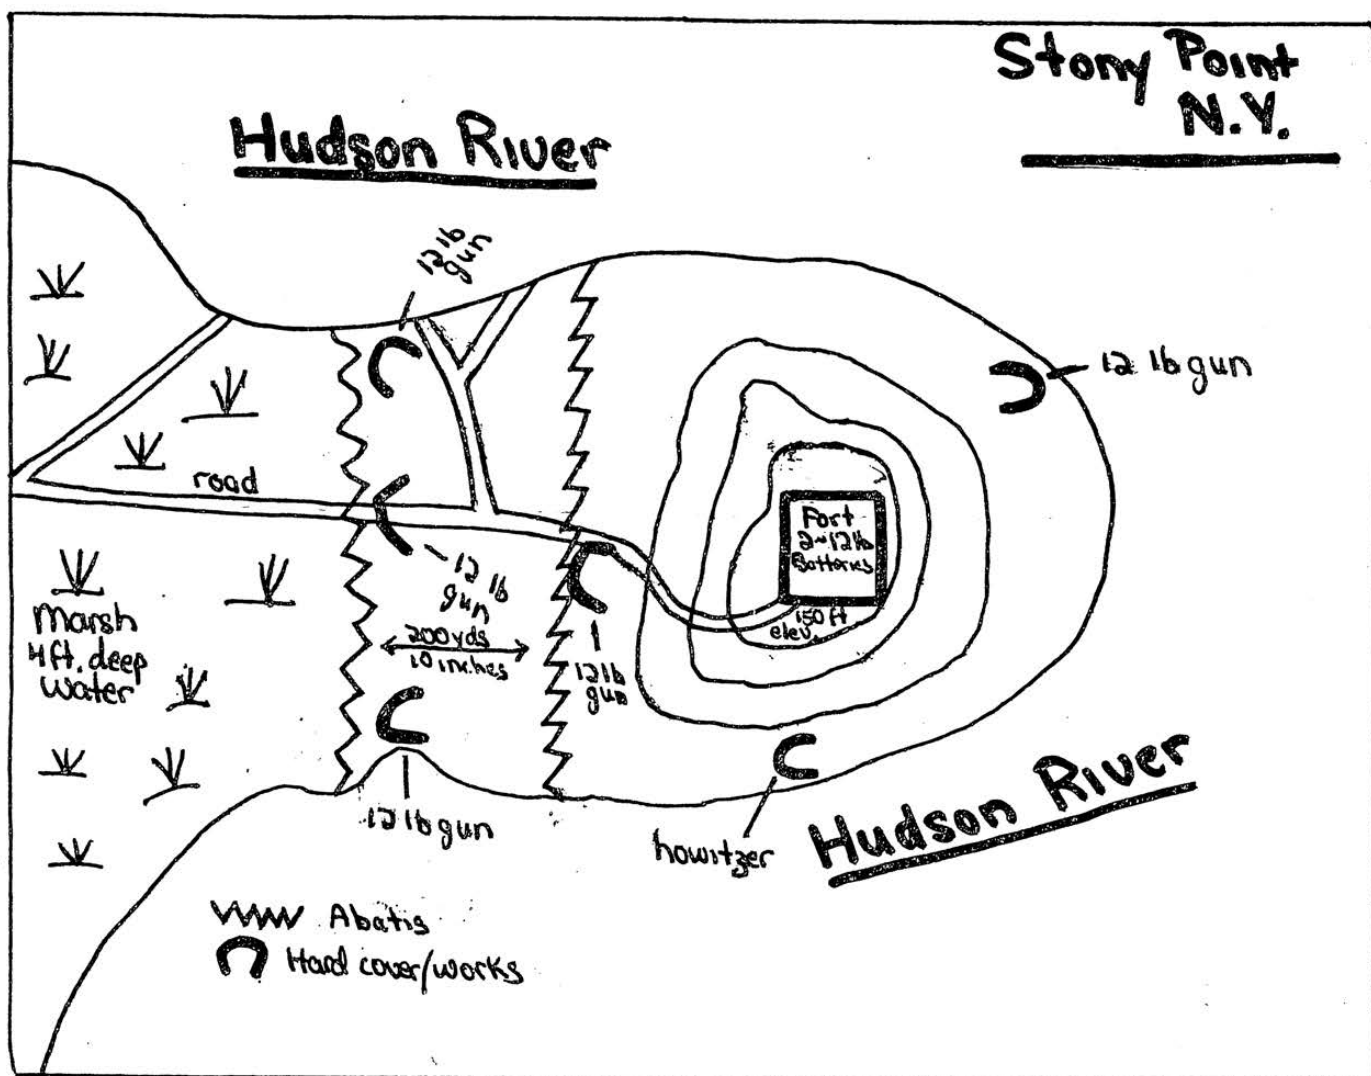 Stony Point
N.Y.
Hudson River
12 lb
gun
12 lb gun
road
Fort
2-12 lb
Batteries
150 ft
elev.
12 lb
gun
200 yds
10 inches
12 lb
gun
Marsh
4 ft. deep
water
12 lb gun
howitzer
Hudson River
Abatis
Hard cover/works